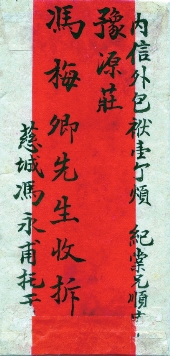 内信外包袱壹丁煩 紀棠兄順
豫源莊
馮梅卿先生收拆
慈城馮永甫托